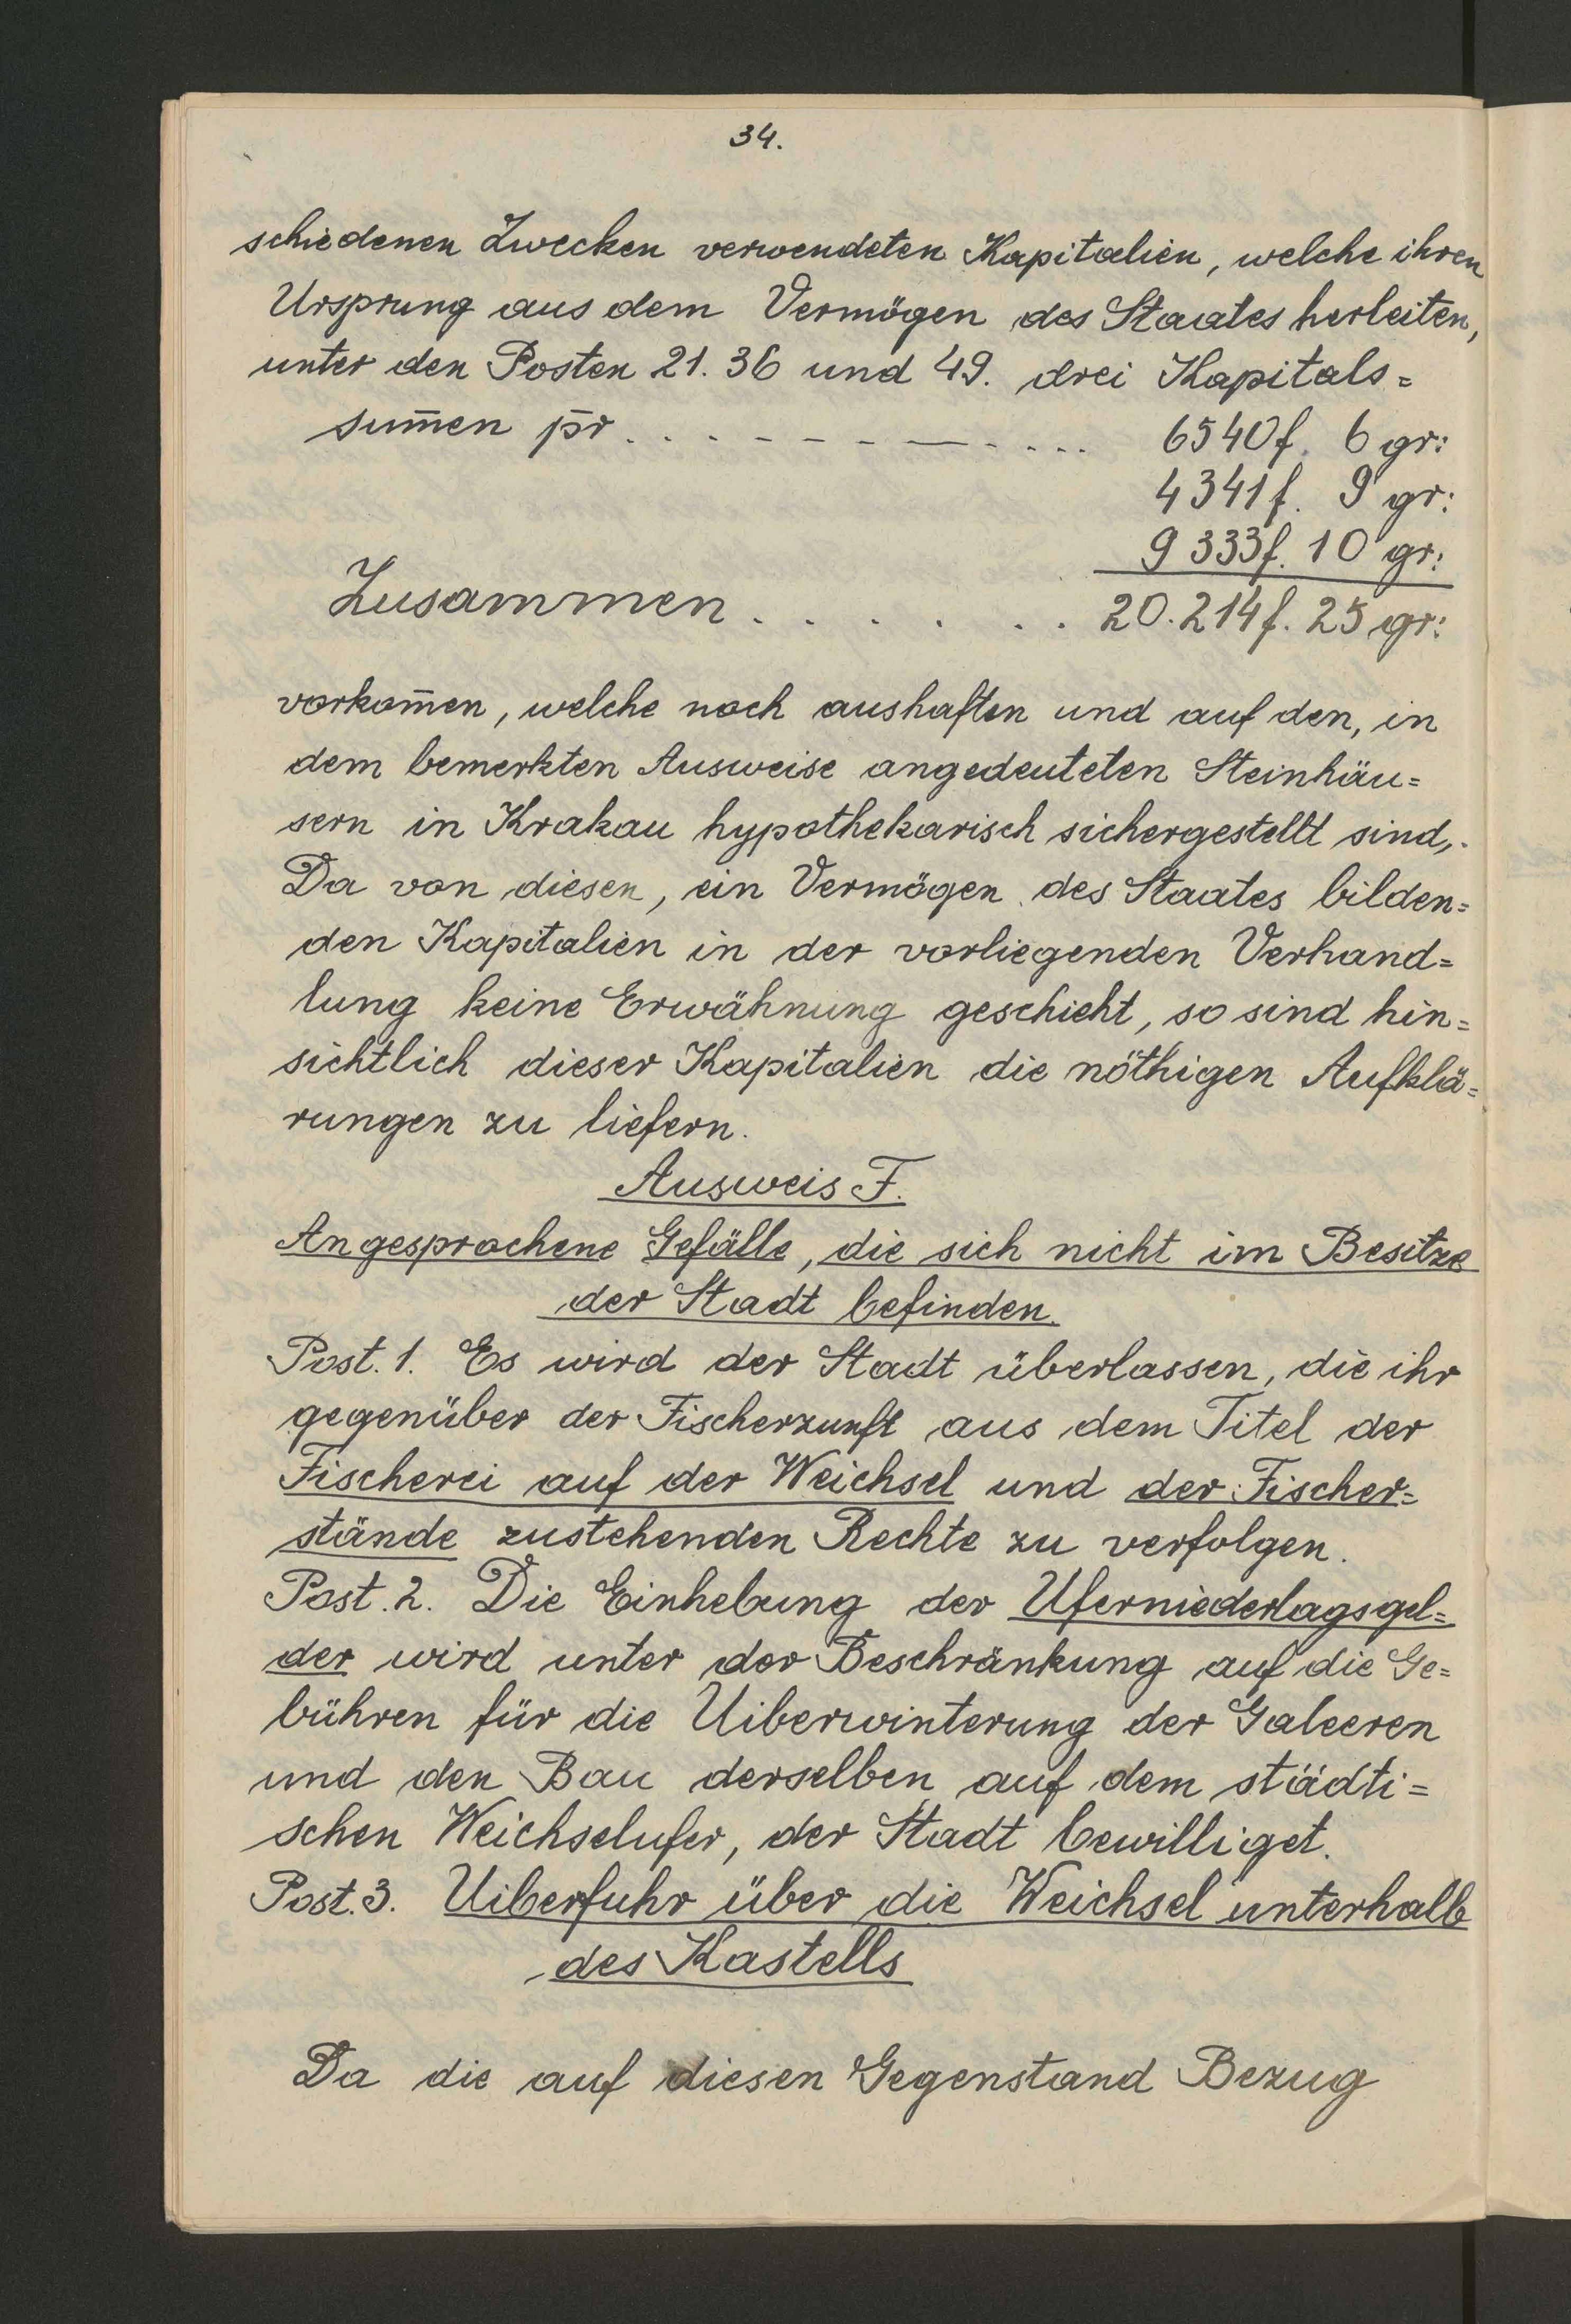 34.
schiedenen Zwecken verwendeten Kapitalien, welche ihren
Ursprung aus dem Vermögen des Staates herleiten,
unter den Posten 21. 36 und 49. drei Kapitals=
sum̄en pr̄ . . . - - - - - - - . . . . 6540f. 6 gr:
4341f. 9 gr:
9333f. 10 gr:
Zusammen . . . . . . . 20.214f. 25 gr:
vorkom̄en, welche noch aushaften und auf den, in
dem bemerkten Ausweise angedeuteten Steinhäu=
sern in Krakau hypothekarisch sichergestellt sind,.
Da von diesen, ein Vermögen des Staates bilden=
den Kapitalien in der vorliegenden Verhand=
lung keine Erwähnung geschieht, so sind hin=
sichtlich dieser Kapitalien die nöthigen Aufklä=
rungen zu liefern.
Ausweis F.
Angesprochene Gefälle, die sich nicht im Besitze
der Stadt befinden.
Post. 1. Es wird der Stadt überlassen, die ihr
gegenüber der Fischerzunft aus dem Titel der
Fischerei auf der Weichsel und der Fischer=
stände zustehenden Rechte zu verfolgen.
Post. 2. Die Einhebung der Uferniederlagsgel=
der wird unter der Beschränkung auf die Ge=
bühren für die Uiberwinterung der Galeeren
und den Bau derselben auf dem städti=
schen Weichselufer, der Stadt bewilliget.
Post. 3. Uiberfuhr über die Weichsel unterhalb
des Kastells
Da die auf diesen Gegenstand Bezug